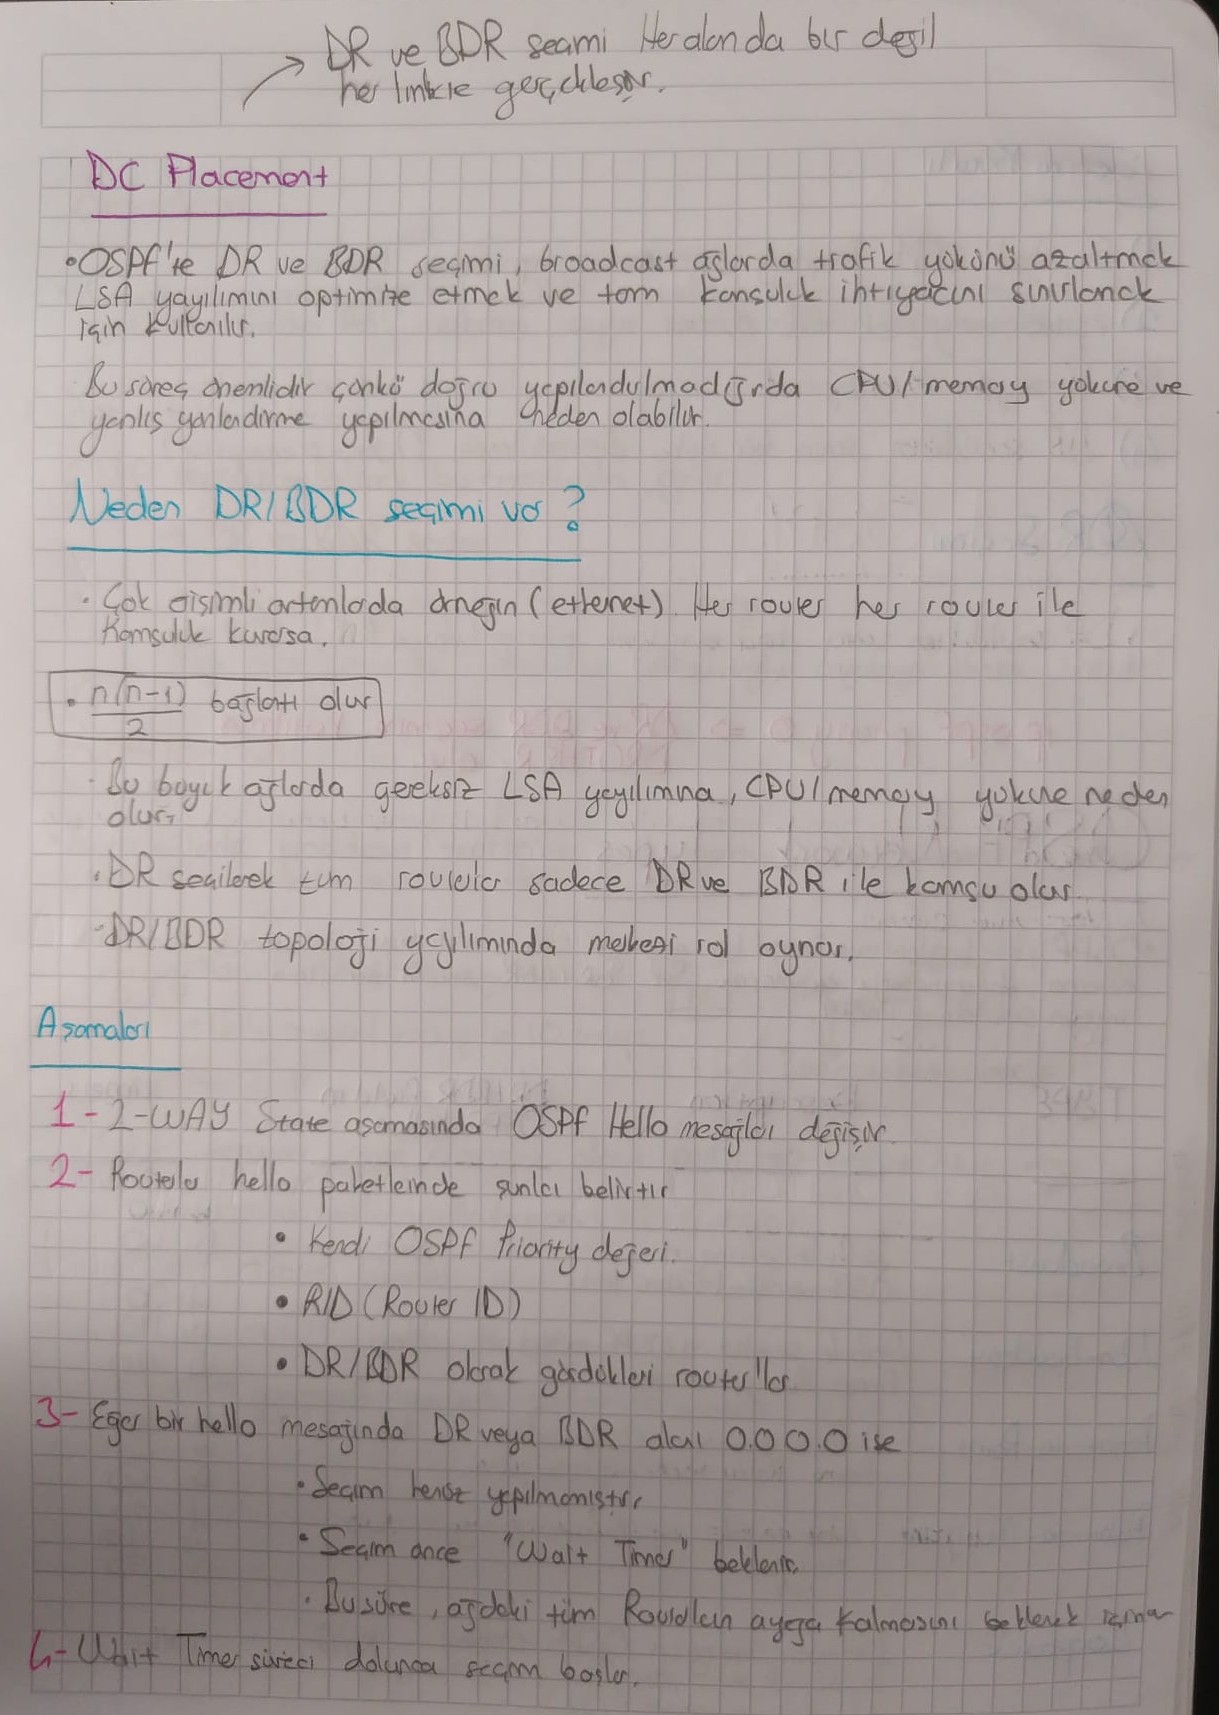 DR ve BDR seçimi Her alanda bir değil
her linkte gerçekleşir.
DC Placement
•OSPF'te DR ve BDR seçimi, broadcast ağlarda trafik yükünü azaltmak
LSA yayılımını optimize etmek ve tam komşuluk ihtiyacını sınırlamak
için kullanılır.
Bu süreç önemlidir çünkü doğru yapılandırılmadığında CPU/memory yüküne ve
yanlış yönlendirme yapılmasına neden olabilir.
Neden DR/BDR seçimi var?
• Çok erişimli ortamlarda örneğin (ethernet). Her router her router ile
Komşuluk kurarsa,
• n(n-1)/2 bağlantı olur
• Bu büyük ağlarda gereksiz LSA yayılımına, CPU/memory yüküne neden
olur.
• DR seçilerek tüm routerlar sadece DR ve BDR ile komşu olur.
- DR/BDR topoloji yayılımında merkezi rol oynar.
Aşamaları
1- 2-WAY State aşamasında OSPF Hello mesajları değişir.
2- Routerlar hello paketlerinde şunları belirtir
• Kendi OSPF Priority değeri.
• RID (Router ID)
• DR/BDR olarak gördükleri router'lar
3- Eğer bir hello mesajında DR veya BDR alanı 0.0.0.0 ise
• Seçim henüz yapılmamıştır.
• Seçim önce "Wait Timer" beklenir.
• Bu süre, ağdaki tüm Routerların ayağa kalmasını beklemek içindir
4- Wait Timer süreci dolunca seçim başlar.